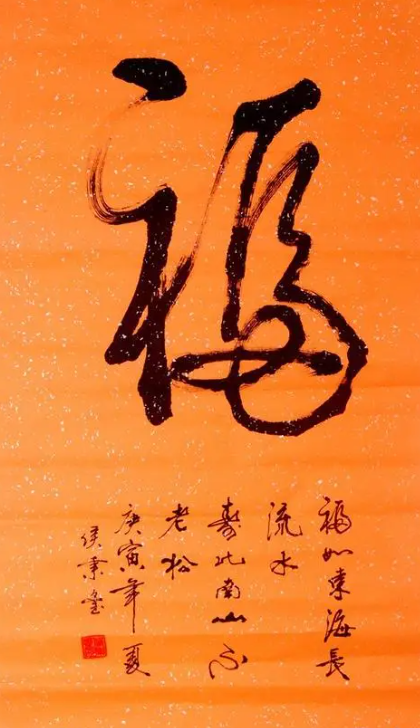 福
福如東海長
流水
壽比南山不
老松
庚寅年夏
侯秉